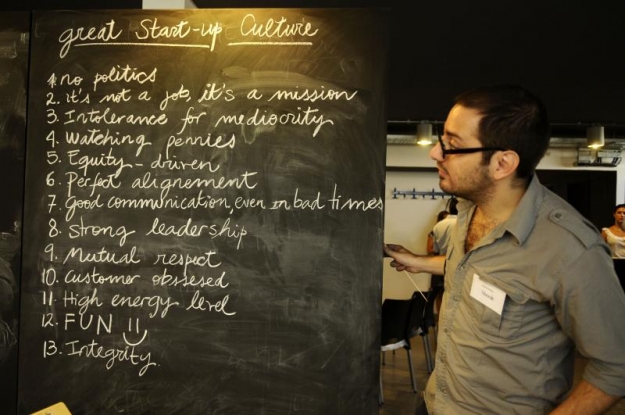 great Start-up Culture
1. no politics
2. it's not a job, it's a mission
3. Intolerance for mediocrity
4. Watching pennies
5. Equity - driven
6. Perfect alignement
7. good communication, even in bad times
8. Strong leadership
9. Mutual respect
10. Customer obssesed
11 High energy level
12. FUN
13. Integrity.